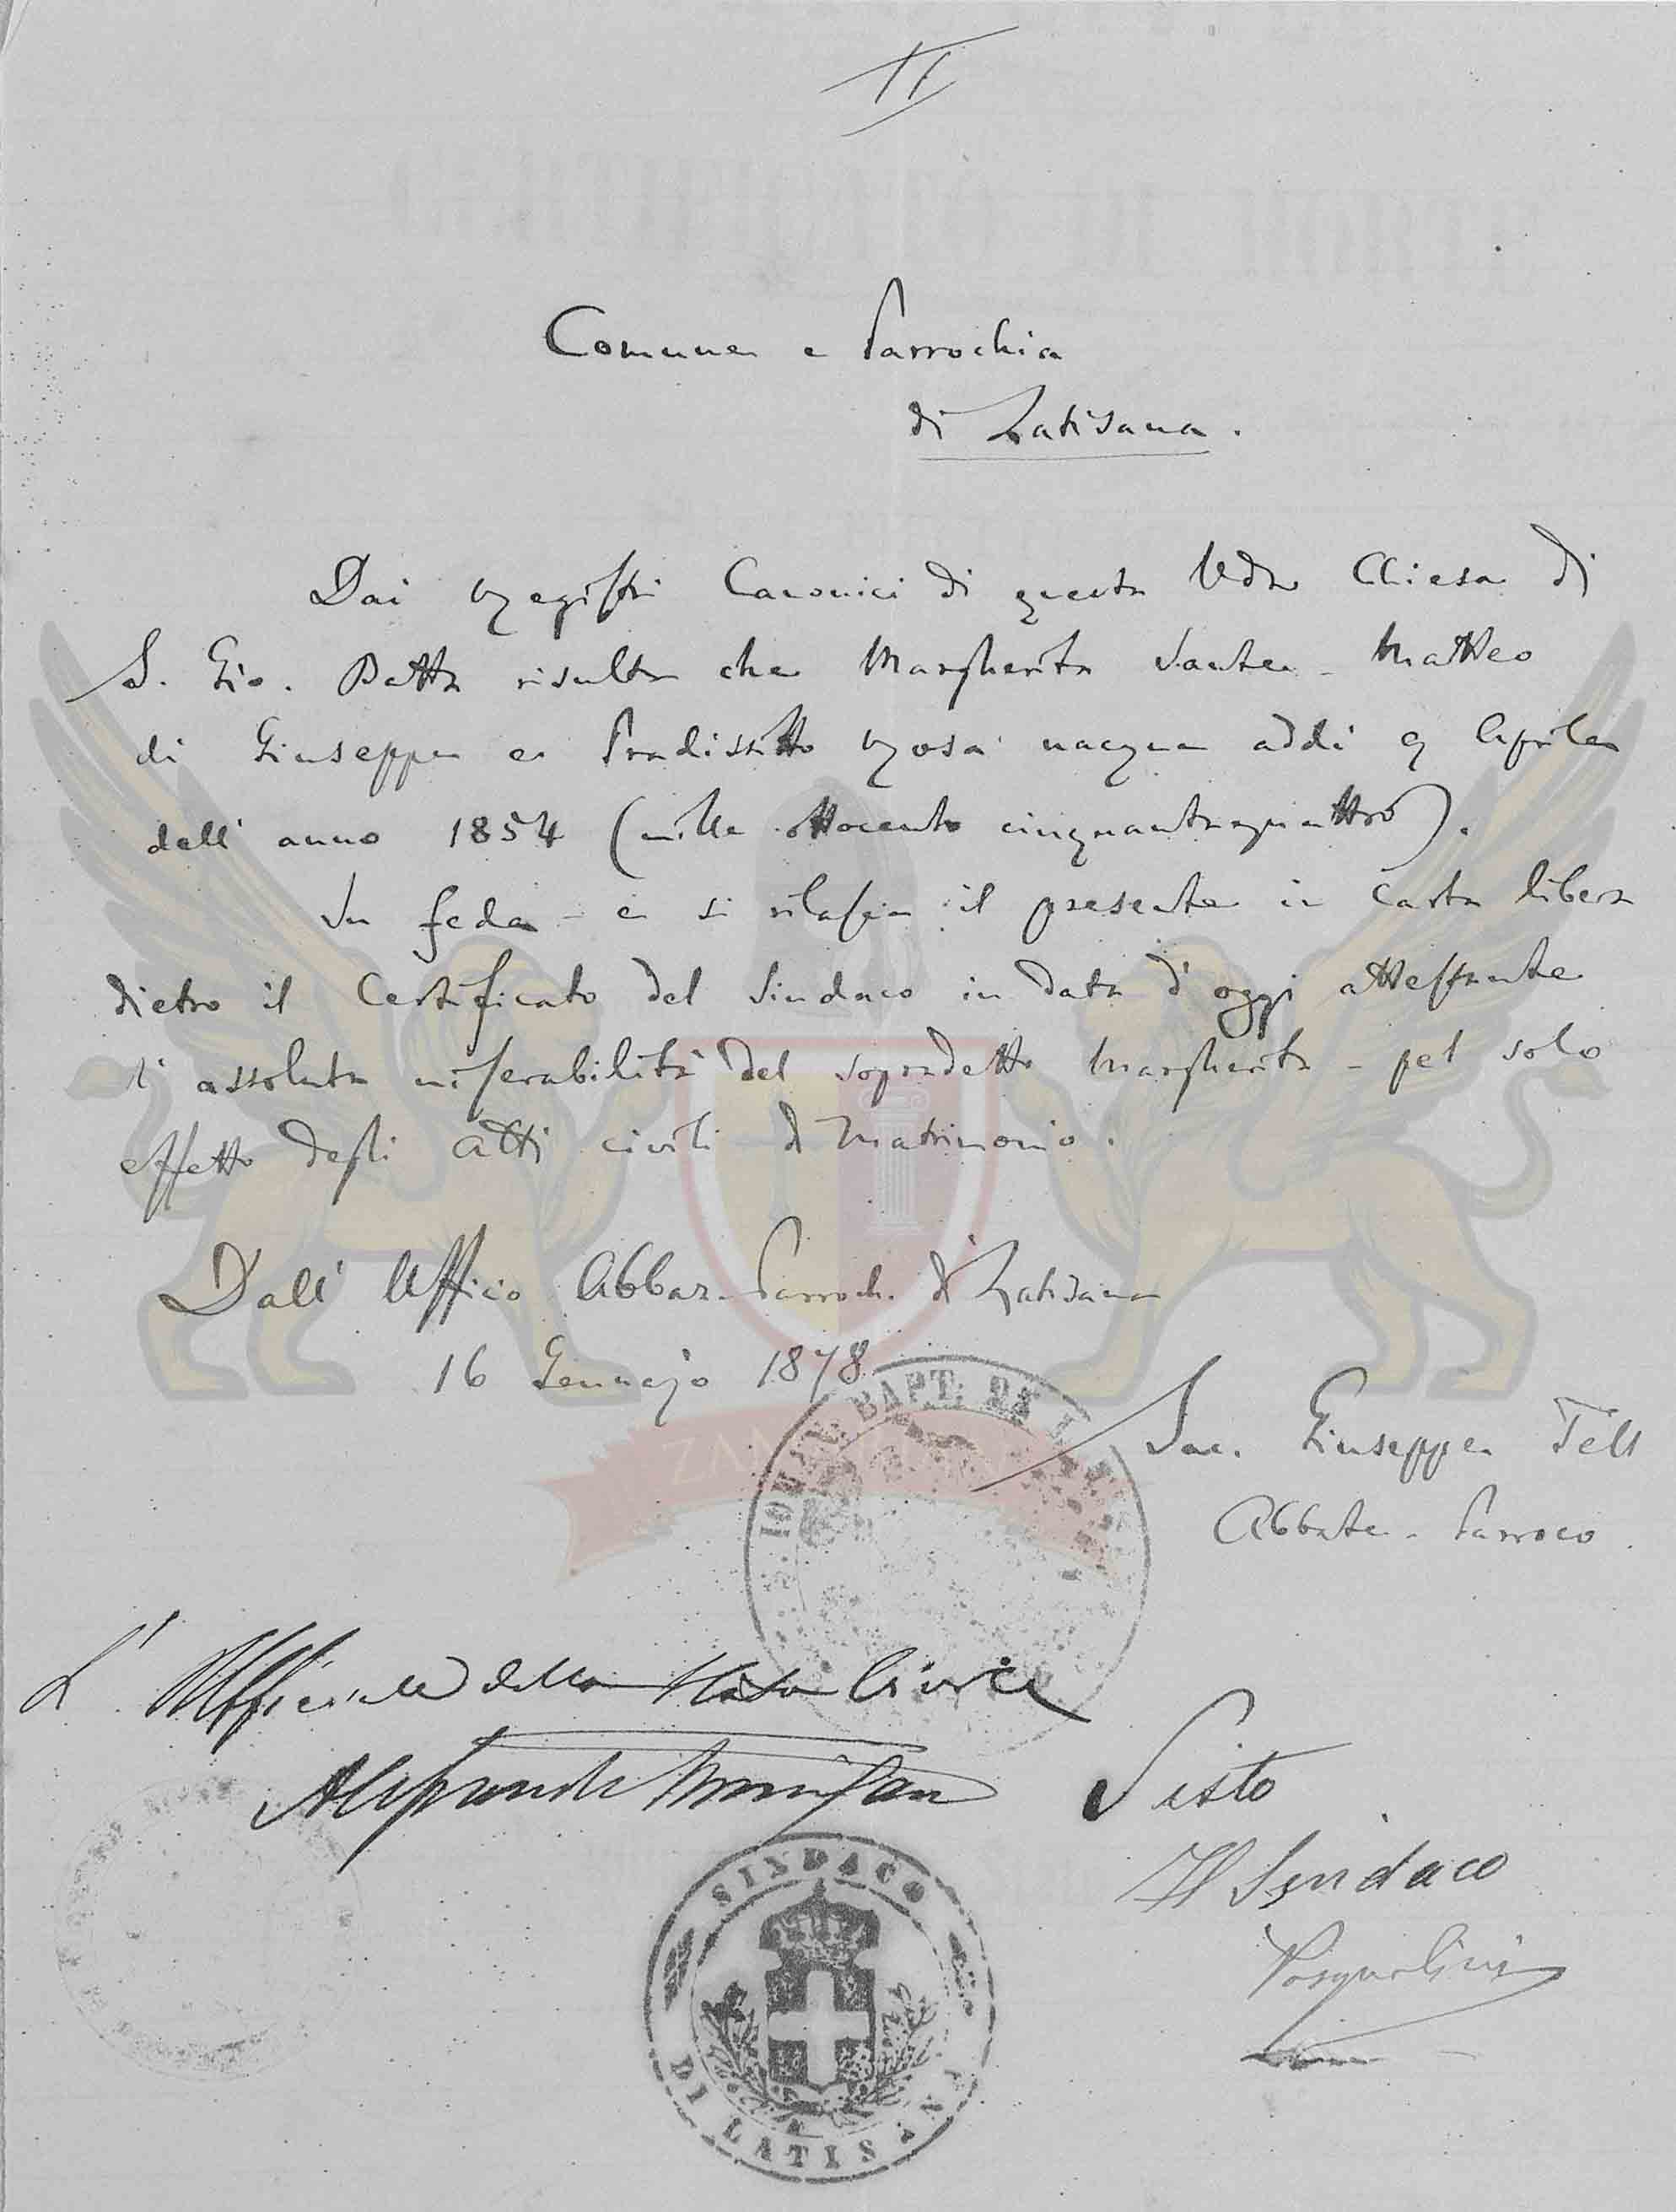 II
Comune e Parrochia
di Latisana.
Dai Registri Canonici di questa Vda Chiesa di
S. Gio. Batta risulta che Margherita Sante - Matteo
di Giuseppe e Pradissitto Rosa nacque addì 9 Aprile
dell' anno 1854 (mille ottocento cinquantaquattro).
In fede - e si rilascia il presente in Carta libera
dietro il Certificato del Sindaco in data d' oggi attestante
l' assoluta miserabilità del sopradetto Margherita - pel solo
effetto degli Atti civili di Matrimonio.
Dall' Ufficio Abbaz. Parroch. di Latisana
16 Gennajo 1878
BAPT. DE
Sac. Giuseppe Tell
Abbate - Parroco.
L' Ufficiale dello Stato Civile
Visto
Il Sindaco
SINDACO
DI LATISANA